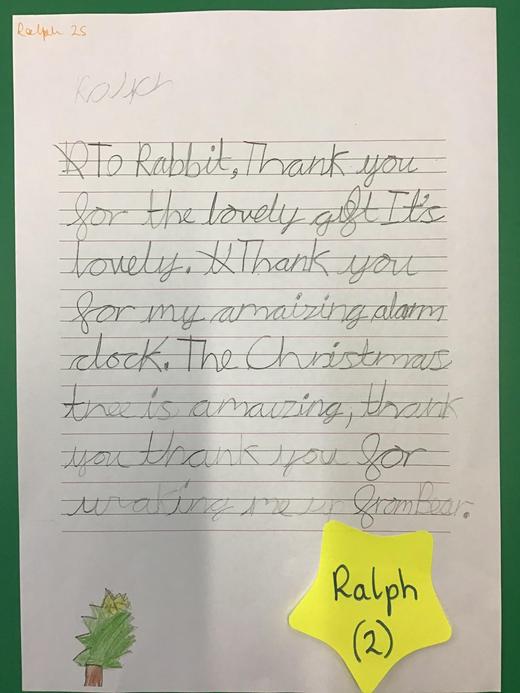 Ralph 2S
Ralph
To Rabbit, Thank you
for the lovely gift It's
lovely. Thank you
for my amaizing alarm
clock. The Christmas
tree is amauzing, thank
you thank you for
wraking me up from Bear.
Ralph
(2)